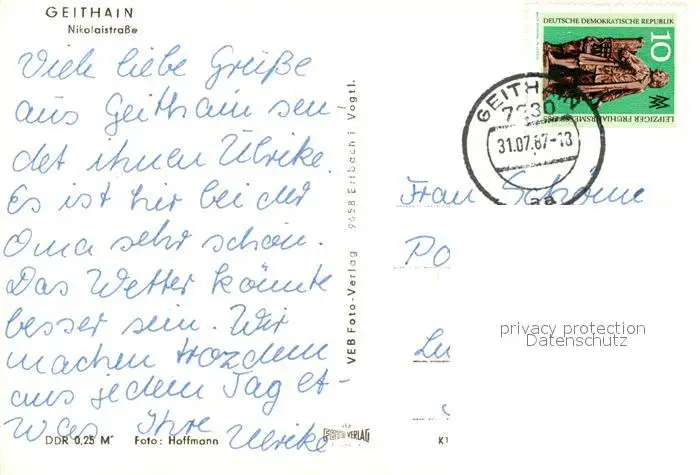 GEITHAIN
Nikolaistraße
Viele liebe Grüße
aus Geithain sen-
det ihnen Ulrike.
Es ist hier bei der
Oma sehr schön.
Das Wetter könnte
besser sein. Wir
machen trozdem
aus jedem Tag et-
was Ihre
Ulrike
DDR 0,25 M Foto: Hoffmann
VEB Foto-Verlag 9658 Erlbach i Vogtl.
FOTO VERLAG
K1
DEUTSCHE DEMOKRATISCHE REPUBLIK
10
LEIPZIGER FRÜHJAHRSMESSE
GEITHAIN
7230
31.07.87-18
Frau Schöne
Po
Lu
privacy protection
Datenschutz